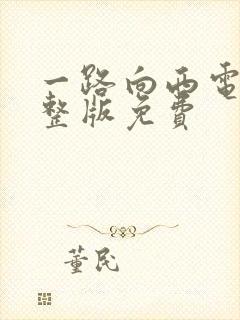 一路向西电
整版免费
董民